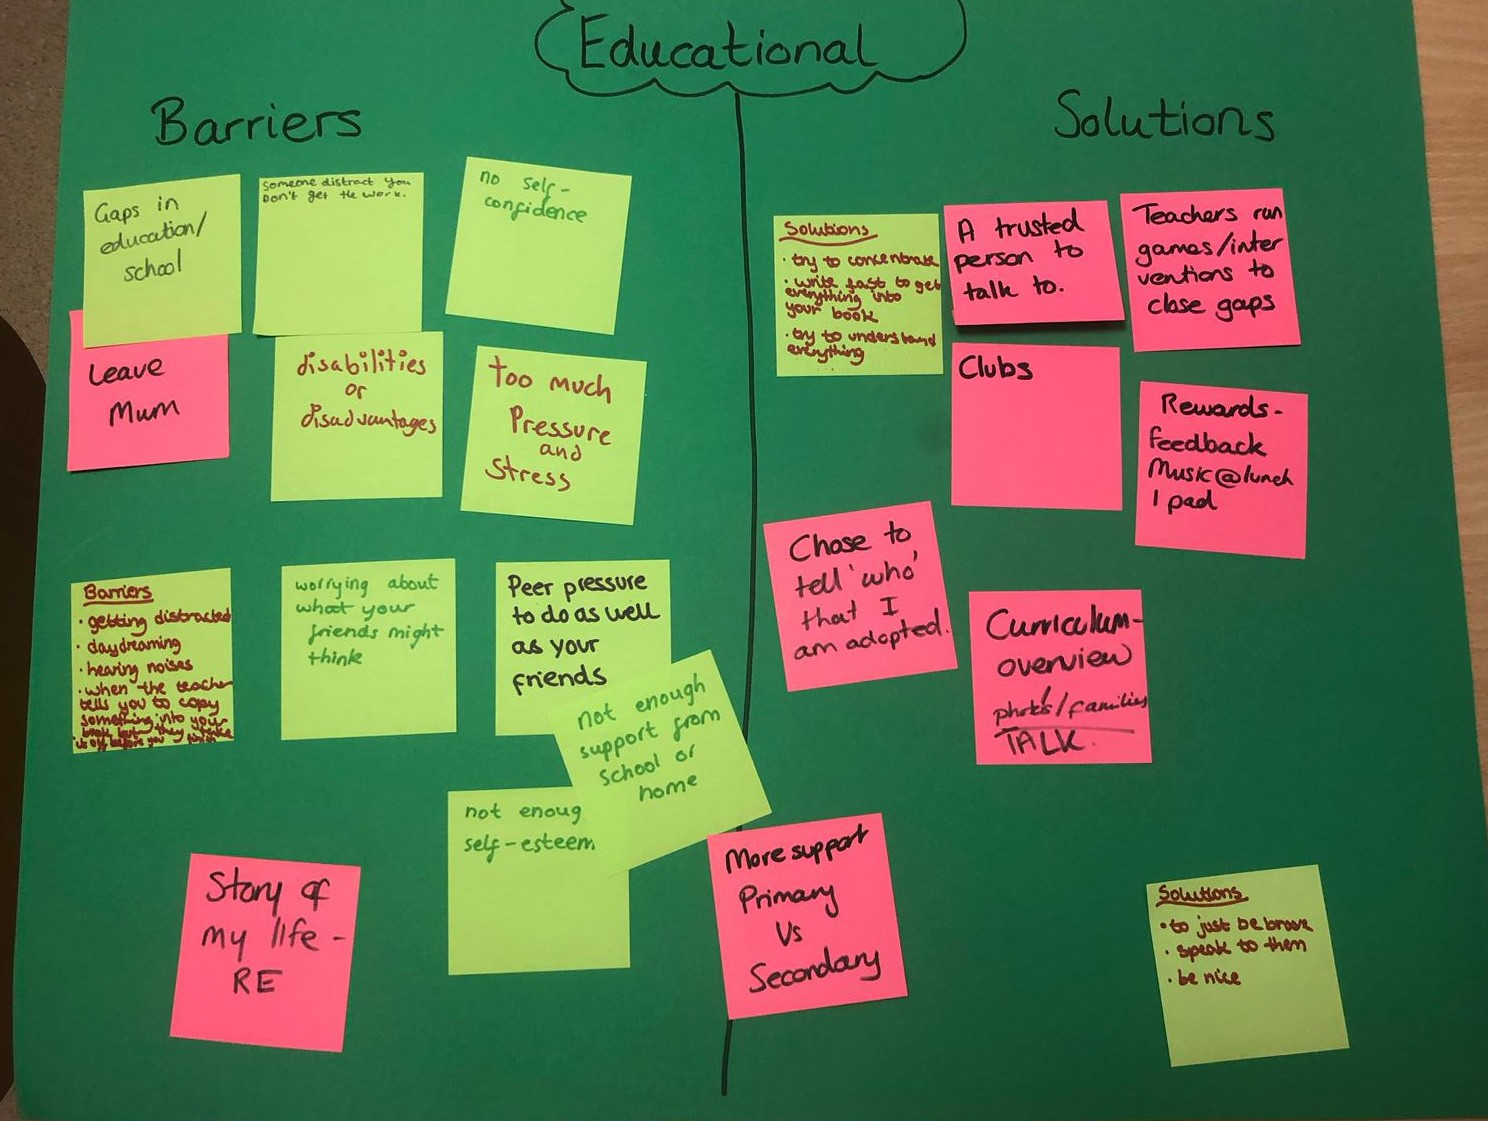 Educational
Barriers
Gaps in
education/
school
Someone distract you
Don't get the work.
no self-
confidence
Leave
Mum
disabilities
or
disadvantages
Too much
Pressure
and
Stress
Barriers
• getting distracted
• daydreaming
• hearing noises
• when the teacher
tells you to copy
something into your
book but they
before you
worrying about
what your
friends might
think
Peer pressure
to do as well
as your
friends
not enough
support from
school or
home
not enoug
self-esteem
Story of
my life -
RE
More support
Primary
Vs
Secondary
Solutions
Solutions
• try to concentrate
• write fast to get
everything into
your book
• try to understand
everything
A trusted
person to
talk to.
Teachers run
games/inter
ventions to
close gaps
Clubs
Rewards-
feedback
Music@lunch
I pad
Chose to
tell 'who'
that I
am adopted.
Curriculum-
overview
photos/families
TALK.
Solutions
• to just be brave
• speak to them
• be nice